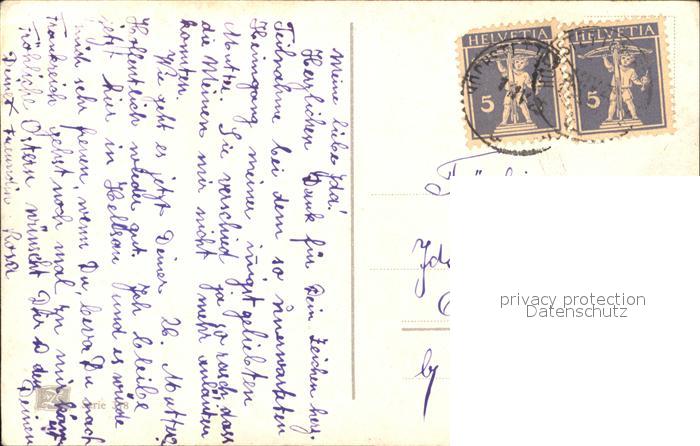 Meine liebe Ida!
Herzlichen Dank für Dein Zeichen herz.
Teilnahme bei dem so unerwarteten
Heimgang meiner innigst geliebten
Mutter. Sie verschied ja so rasch, dass
die Meinen mir nicht mehr anläuten
konnten.
Wie geht es jetzt Deiner lb. Mutter,
Hoffentlich wieder gut. Ich bleibe
jetzt hier in Hellsau und es würde
mich sehr freuen, wenn Du, bevor Du nach
Frankreich gehst noch mal zu mir
Fröhliche Ostern wünscht Dir & den Deinen
Deine Freundin Rosa
HELVETIA
5
HELVETIA
5
Ida
by
Serie
privacy protection
Datenschutz